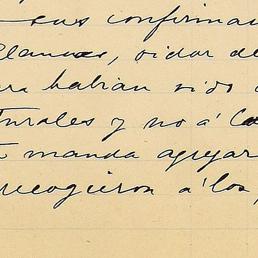 sus confirma
, oidor de
habian sido
turales y no á
manda agregar
recogieron á los,